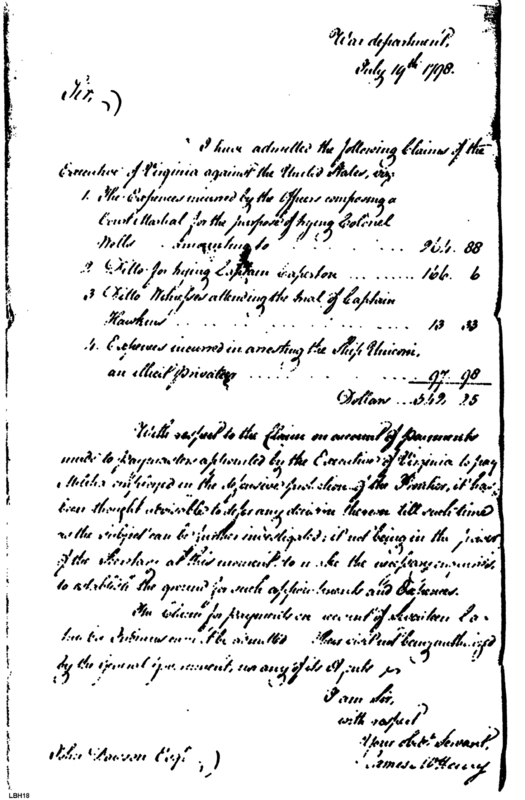 War department,
July 19th 1798.
Sir,
I have admitted the following Claims of the
Executive of Virginia against the United States, viz
1. The Expences incurred by the Officers composing a
Court Martial for the purpose of trying Colonel
Wells . amounting to . . . . . . 88
2 Ditto for trying Captain . . . . . . 166. 6
3 Ditto Witnesses attending the trial of Captain
Hawkins . . . . . . 13 33
4. Expenses incurred in arresting the Ship Unicorn,
an illicit privateer . . . . . . 97 98
Dollars ... 25
With respect to the Claim on account of payments
made to paymasters appointed by the Executive of Virginia to pay
Militia employed in the defensive protection of the Frontier, it has
been thought advisable to defer any decision thereon till such time
as the subject can be further investigated; it not being in the power
of the at this moment to make the necessary inquiries,
to establish the ground for such appointments and Expences.
The Claim for payments on account of Seventeen
cannot be admitted their visit not being authorized
by the general government, nor any of its Agents
I am Sir,
with respect
Your obt. Servant,
James McHenry
John Dawson Esqr.
LBH18